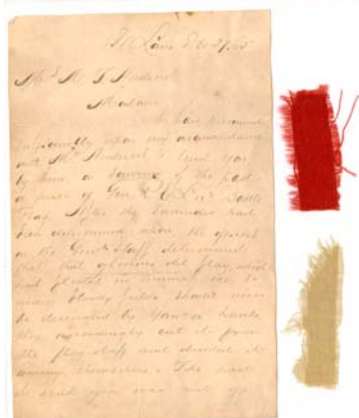 St Louis Dec 27/65
Madam
I have presumed
sufficiently upon my acquaintance
with Mr to send you
by him a Souvenir of the past
a piece of Gen. R E Lee's Battle
Flag. After the Surrender had
been determined upon the officers
on the Genl's Staff determined
that that glorious old flag which
had floated in over so
many bloody fields should never
be desecrated by Yankee hands
They accordingly cut it from
the flag-staff and divided it
among themselves. The
I send you was cut off